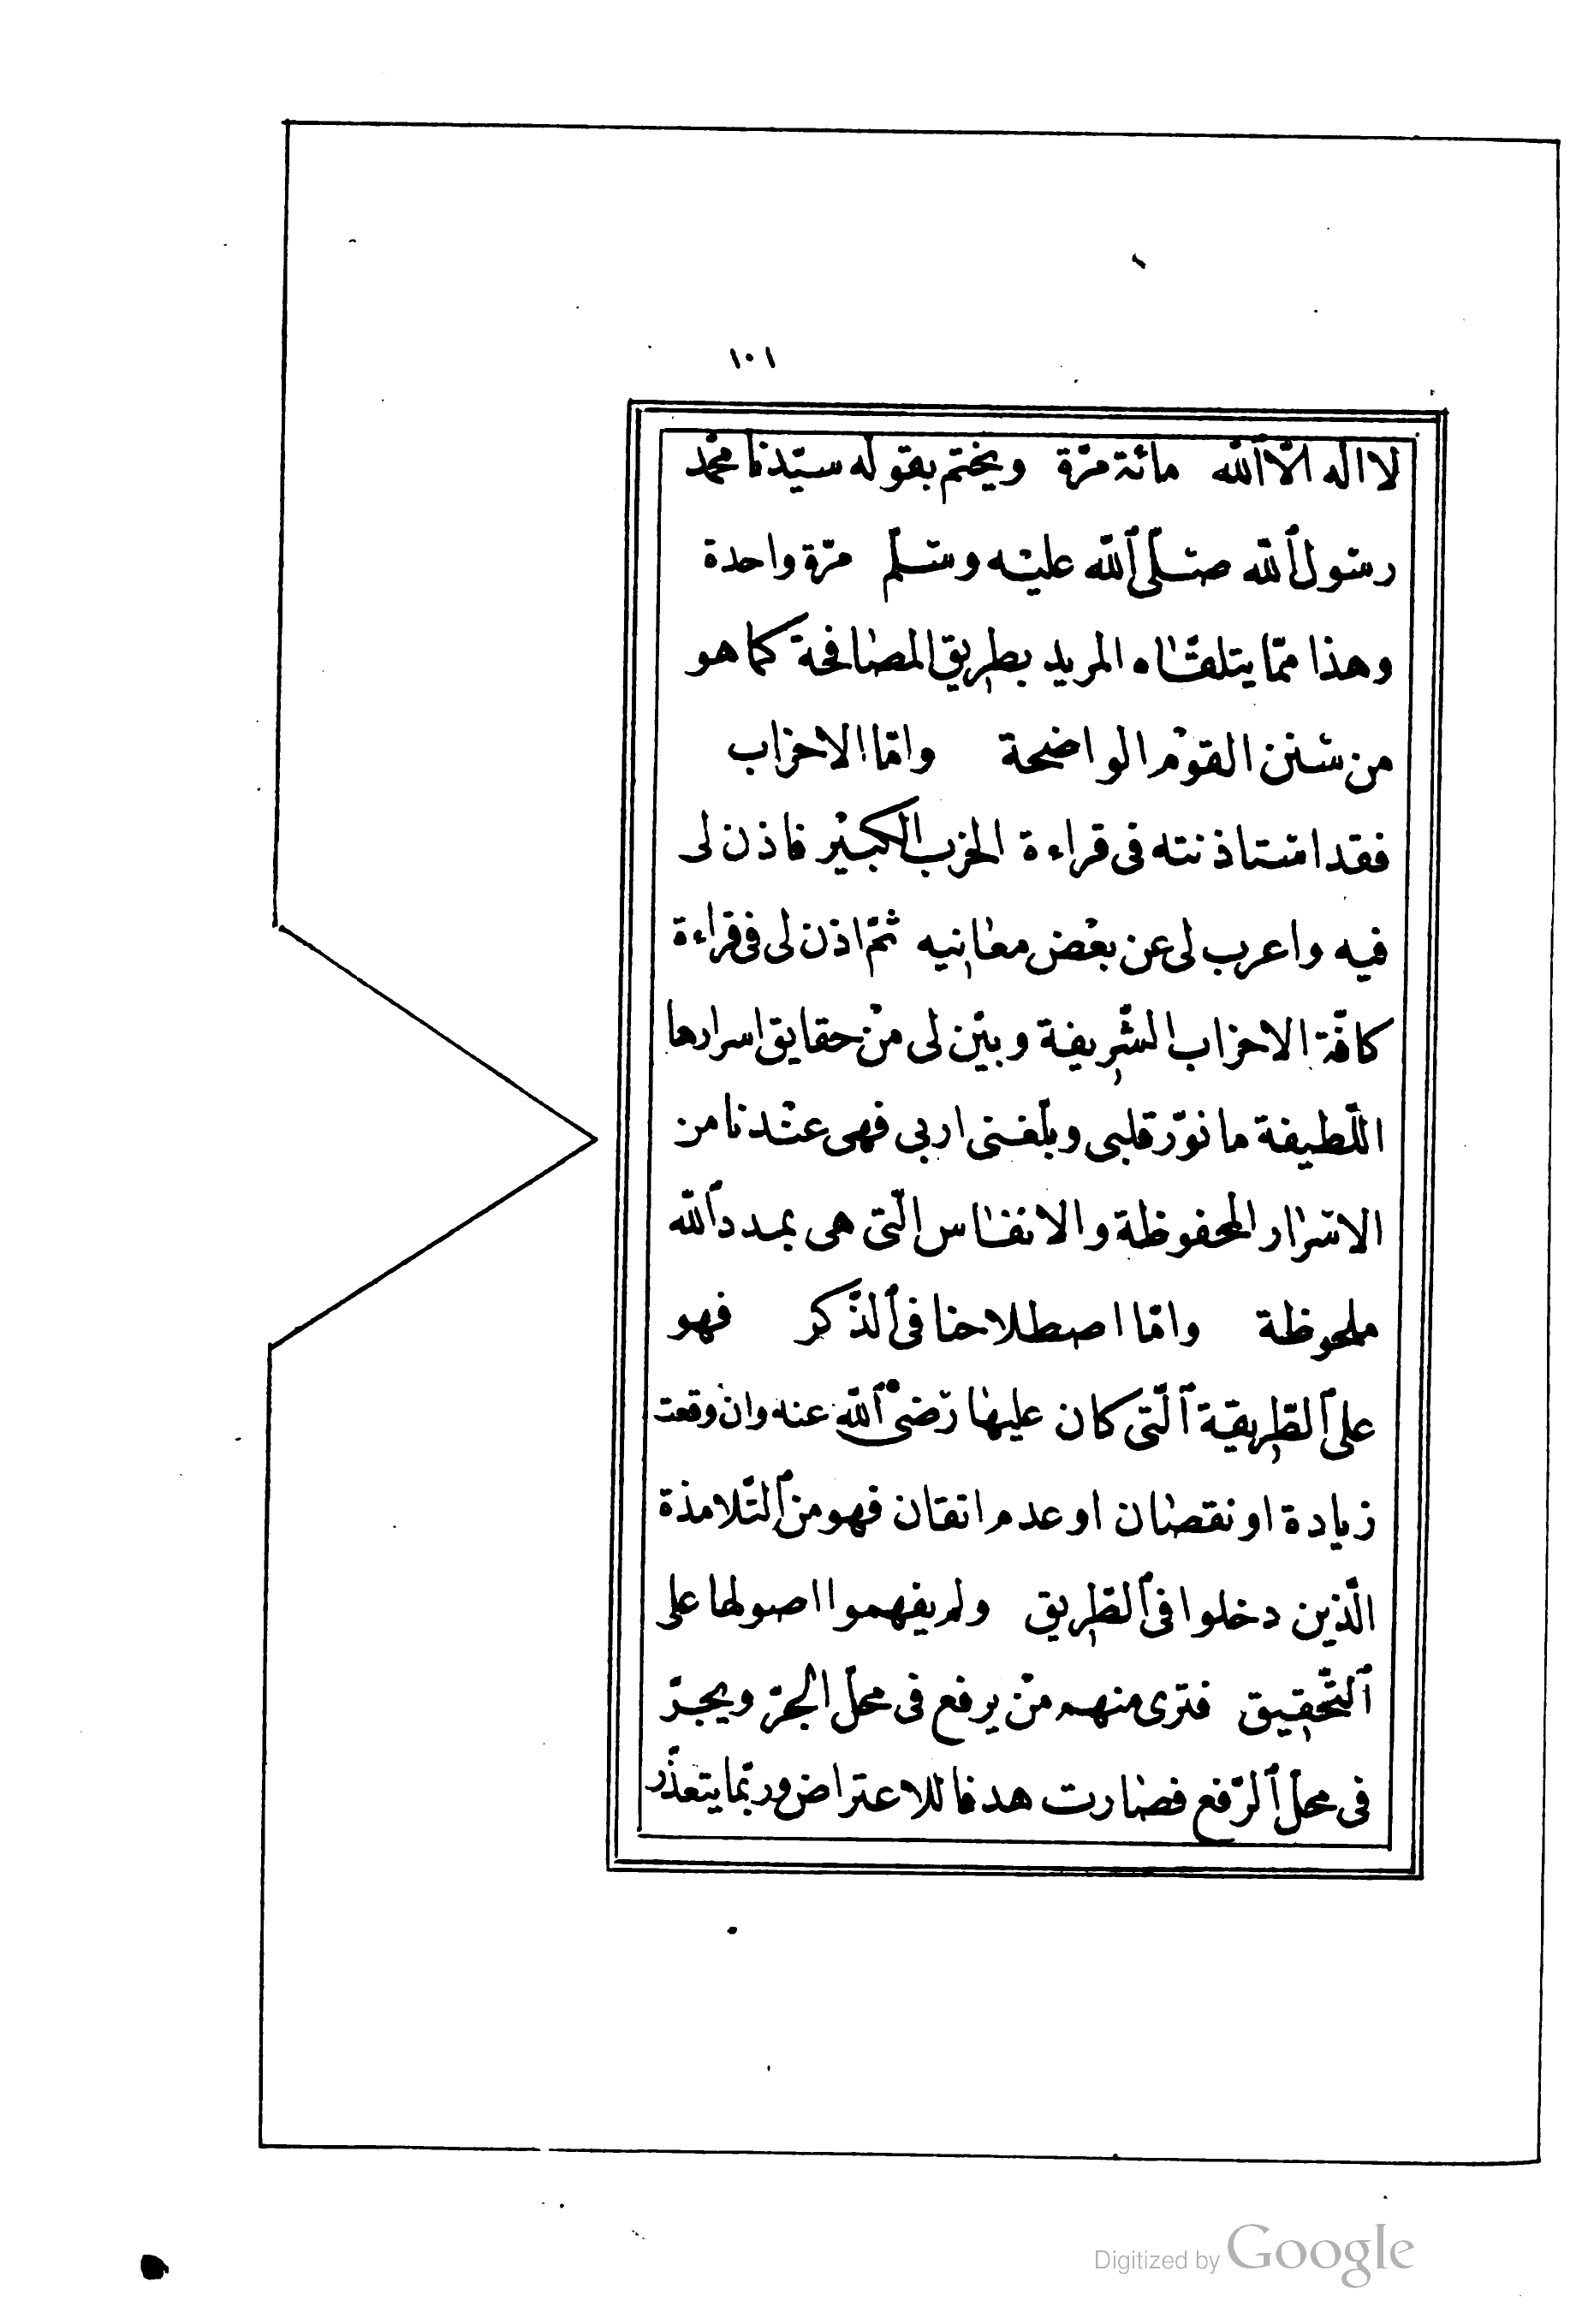 ١٠١
لا اله الّا ٱللّه مائة مرّة ويختم بقوله سيّدنا محمّد
رسول ٱللّه صلّى ٱللّه عليه وسلّم مرّة واحدة
وهذا ممّا يتلقّاه المريد بطريق المصافحة كما هو
من سنن القوم الواضحة وامّا الاحزاب
فقد استاذنته فى قراءة الحزب الكبير فاذن لى
فيه واعرب لى عن بعض معانيه ثمّ اذن لى فى قراءة
كافّة الاحزاب الشّريفة وبيّن لى من حقايق اسرارها
اللّطيفة ما نوّر قلبى وبلّغنى اربى فهى عندنا من
الاسرار المحفوظة والانفاس الّتى هى بمدد ٱللّه
ملحوظة وامّا اصطلاحنا فى ٱلذّكر فهو
على ٱلطّريقة ٱلّتى كان عليها رضى ٱللّه عنه وان وقعت
زيادة او نقصان او عدم اتقان فهو من ٱلتّلامذة
الّذين دخلوا فى ٱلطّريق ولم يفهموا اصولها على
ٱلتّحقيق فترى منهم من يرفع فى محلّ الجرّ ويجرّ
فى محلّ ٱلرّفع فصارت هدفا للاعتراض وربّما يتعذّر
Digitized by Google